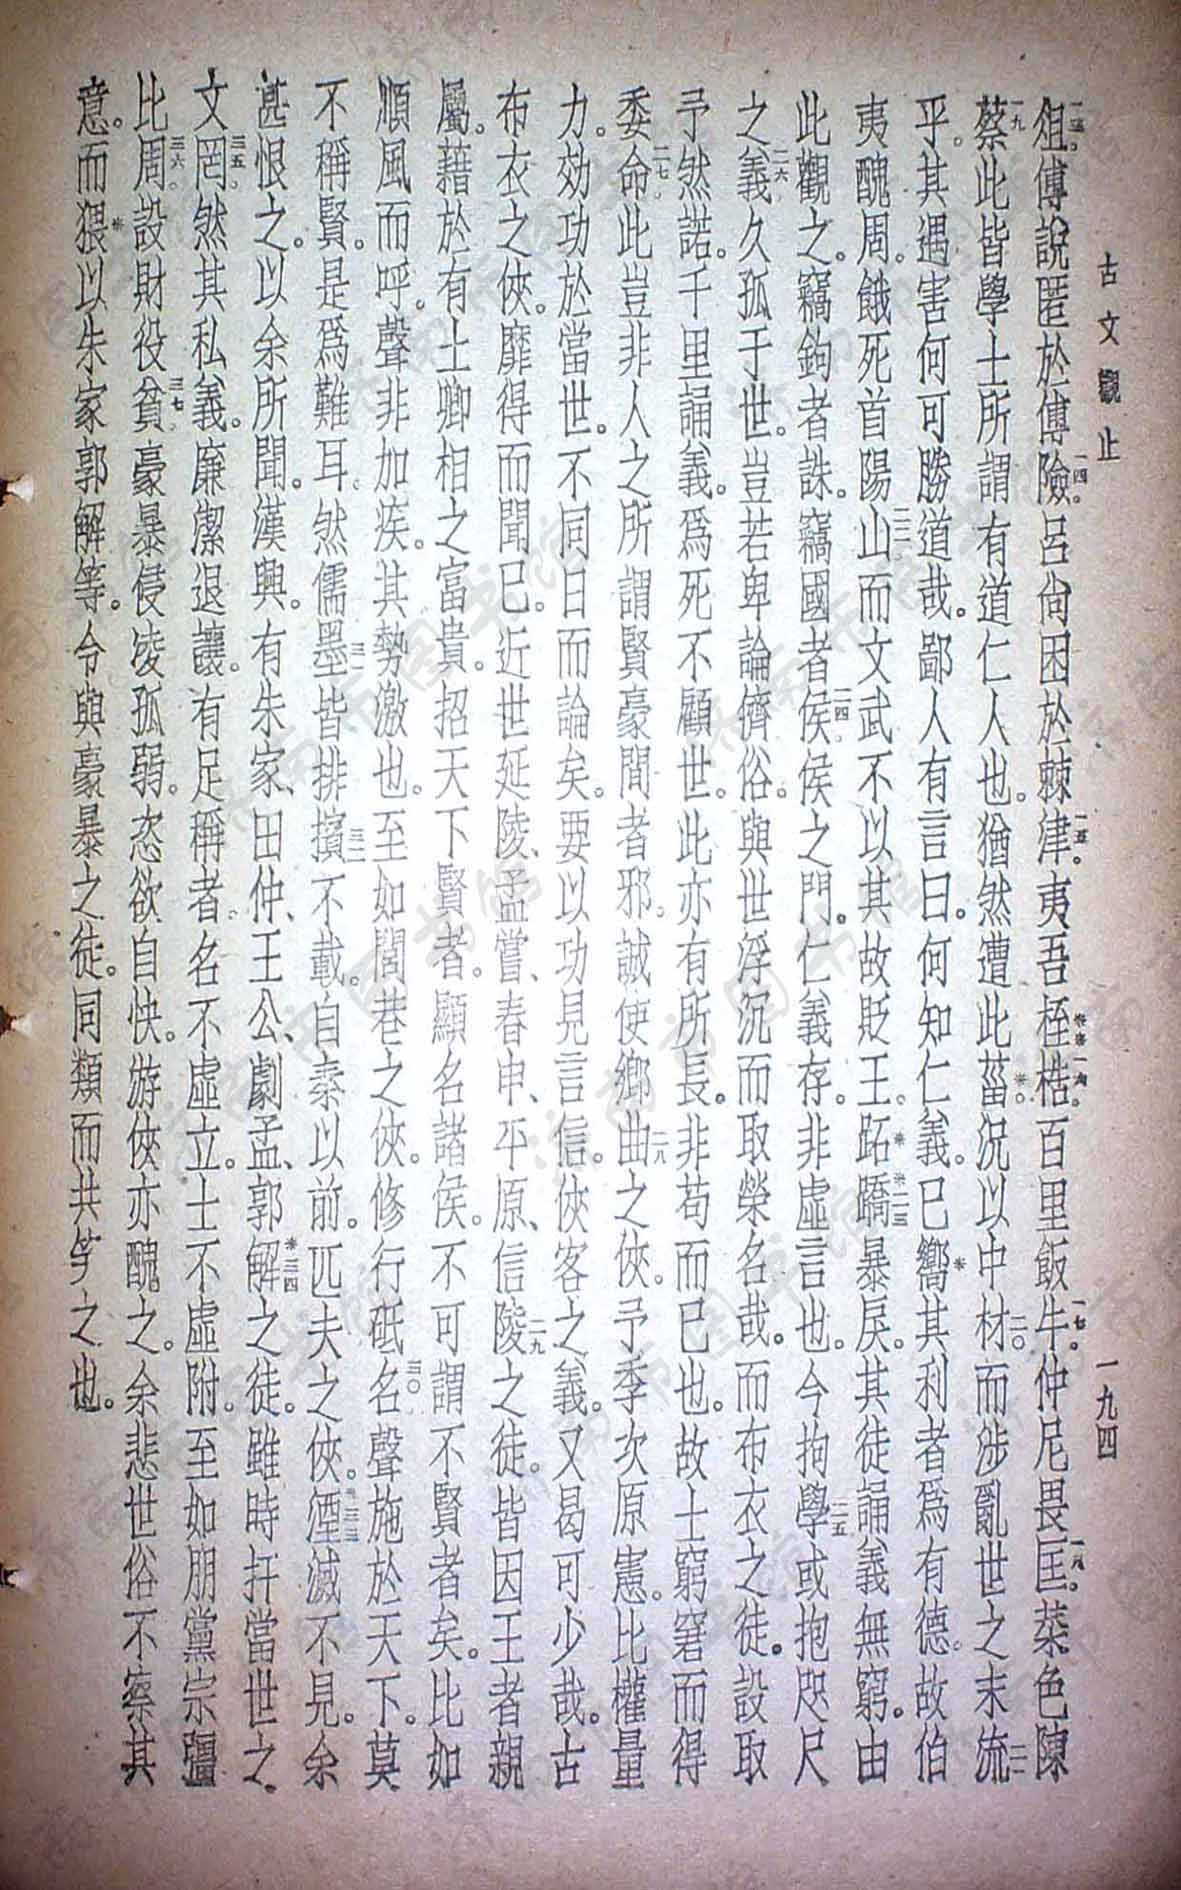 古文觀止
一九四
俎。一三傅說匿於傅險。一四呂尙困於棘津。一五夷吾桎梏。一六百里飯牛。一七仲尼畏匡。一八菜色陳
蔡一九此皆學士所謂有道仁人也。猶然遭此菑。況以中材二〇而涉亂世之末流二一
乎。其遇害何可勝道哉。鄙人有言曰。何知仁義。已嚮其利者爲有德。故伯
夷醜周。餓死首陽山二二而文武不以其故貶王。跖蹻二三暴戾。其徒誦義無窮。由
此觀之。竊鉤者誅。竊國者侯二四侯之門。仁義存。非虛言也。今拘學二五或抱咫尺
之義二六久孤于世。豈若卑論儕俗。與世浮沉而取榮名哉。而布衣之徒。設取
予然諾。千里誦義。爲死不顧世。此亦有所長。非苟而已也。故士窮窘而得
委命二七此豈非人之所謂賢豪間者邪。誠使鄉曲二八之俠。予季次原憲。比權量
力。効功於當世。不同日而論矣。要以功見言信。俠客之義。又曷可少哉。古
布衣之俠。靡得而聞已。近世延陵、孟嘗、春申、平原、信陵二九之徒。皆因王者親
屬。藉於有土卿相之富貴。招天下賢者。顯名諸侯。不可謂不賢者矣。比如
順風而呼。聲非加疾。其勢激也。至如閭巷之俠。修行砥名三〇聲施於天下。莫
不稱賢。是爲難耳。然儒墨三一皆排擯三二不載。自秦以前。匹夫之俠。湮三三滅不見。余
甚恨之。以余所聞。漢興。有朱家、田仲、王公、劇孟、郭解三四之徒。雖時扞當世之
文罔。三五然其私義。廉潔退讓。有足稱者。名不虛立。士不虛附。至如朋黨宗彊
比周。三六設財役貧。三七豪暴侵淩孤弱。恣欲自快。游俠亦醜之。余悲世俗不察其
意。而猥以朱家郭解等。令與豪暴之徒。同類而共笑之也。